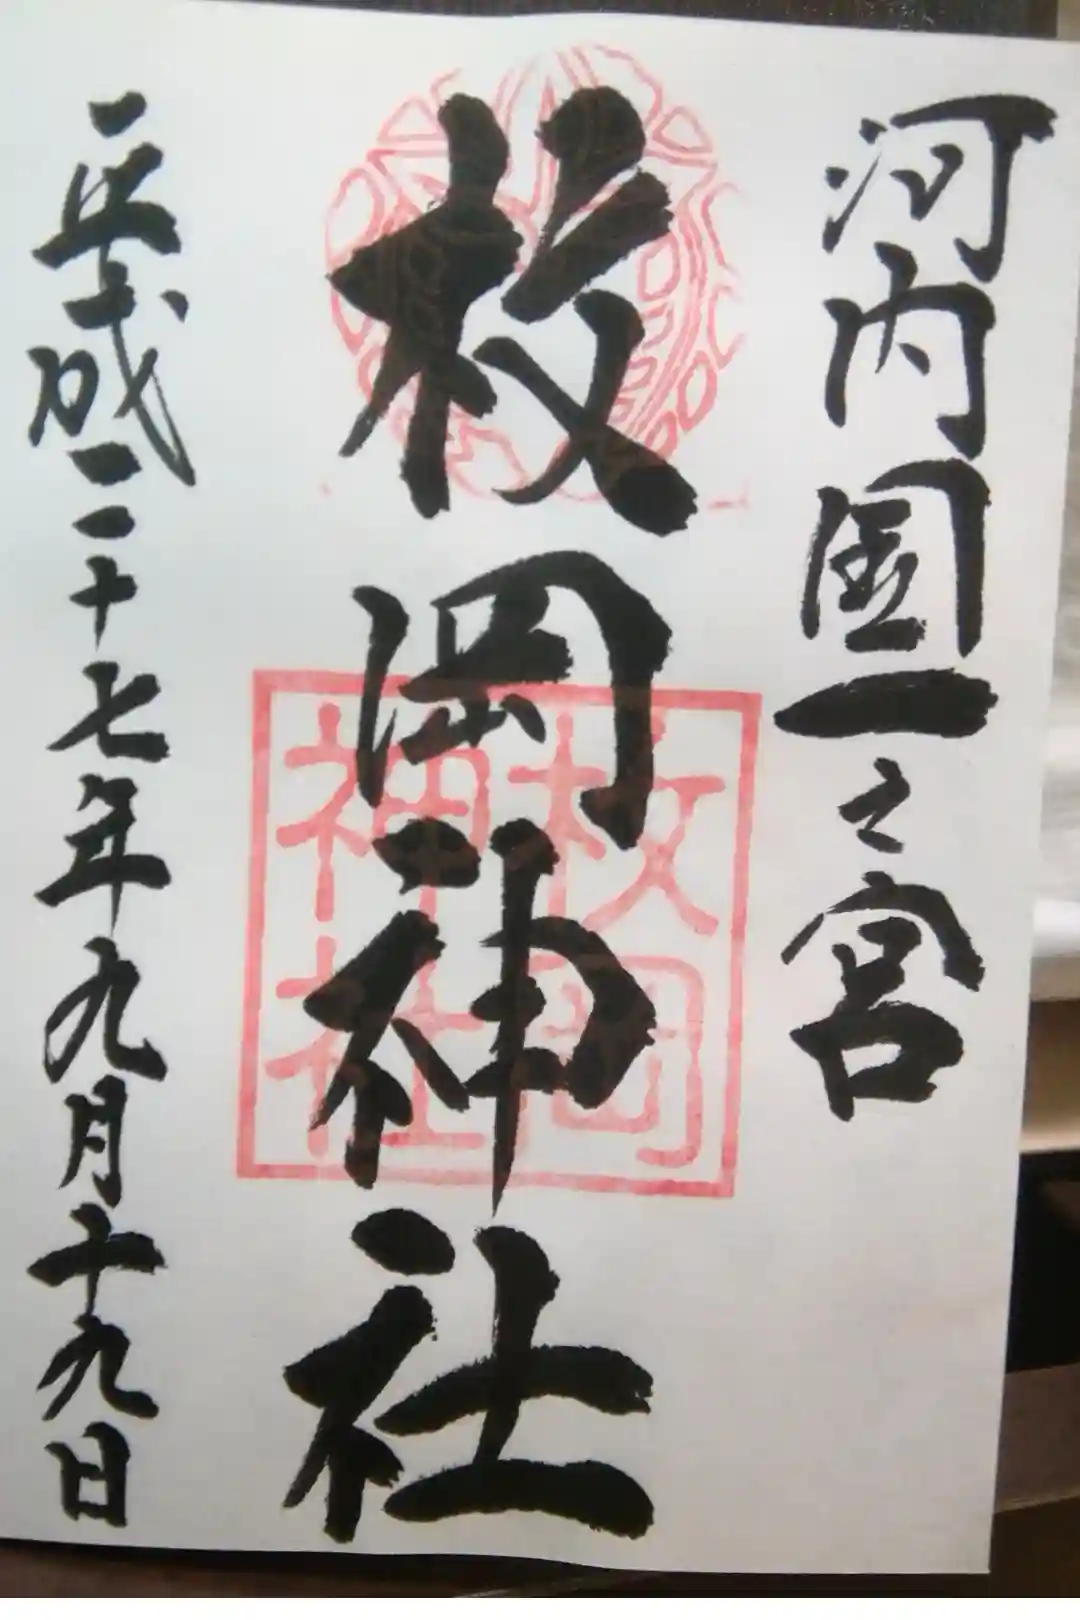 河内国一之宮
枚岡神社
枚岡
神社
平成二十七年九月十九日